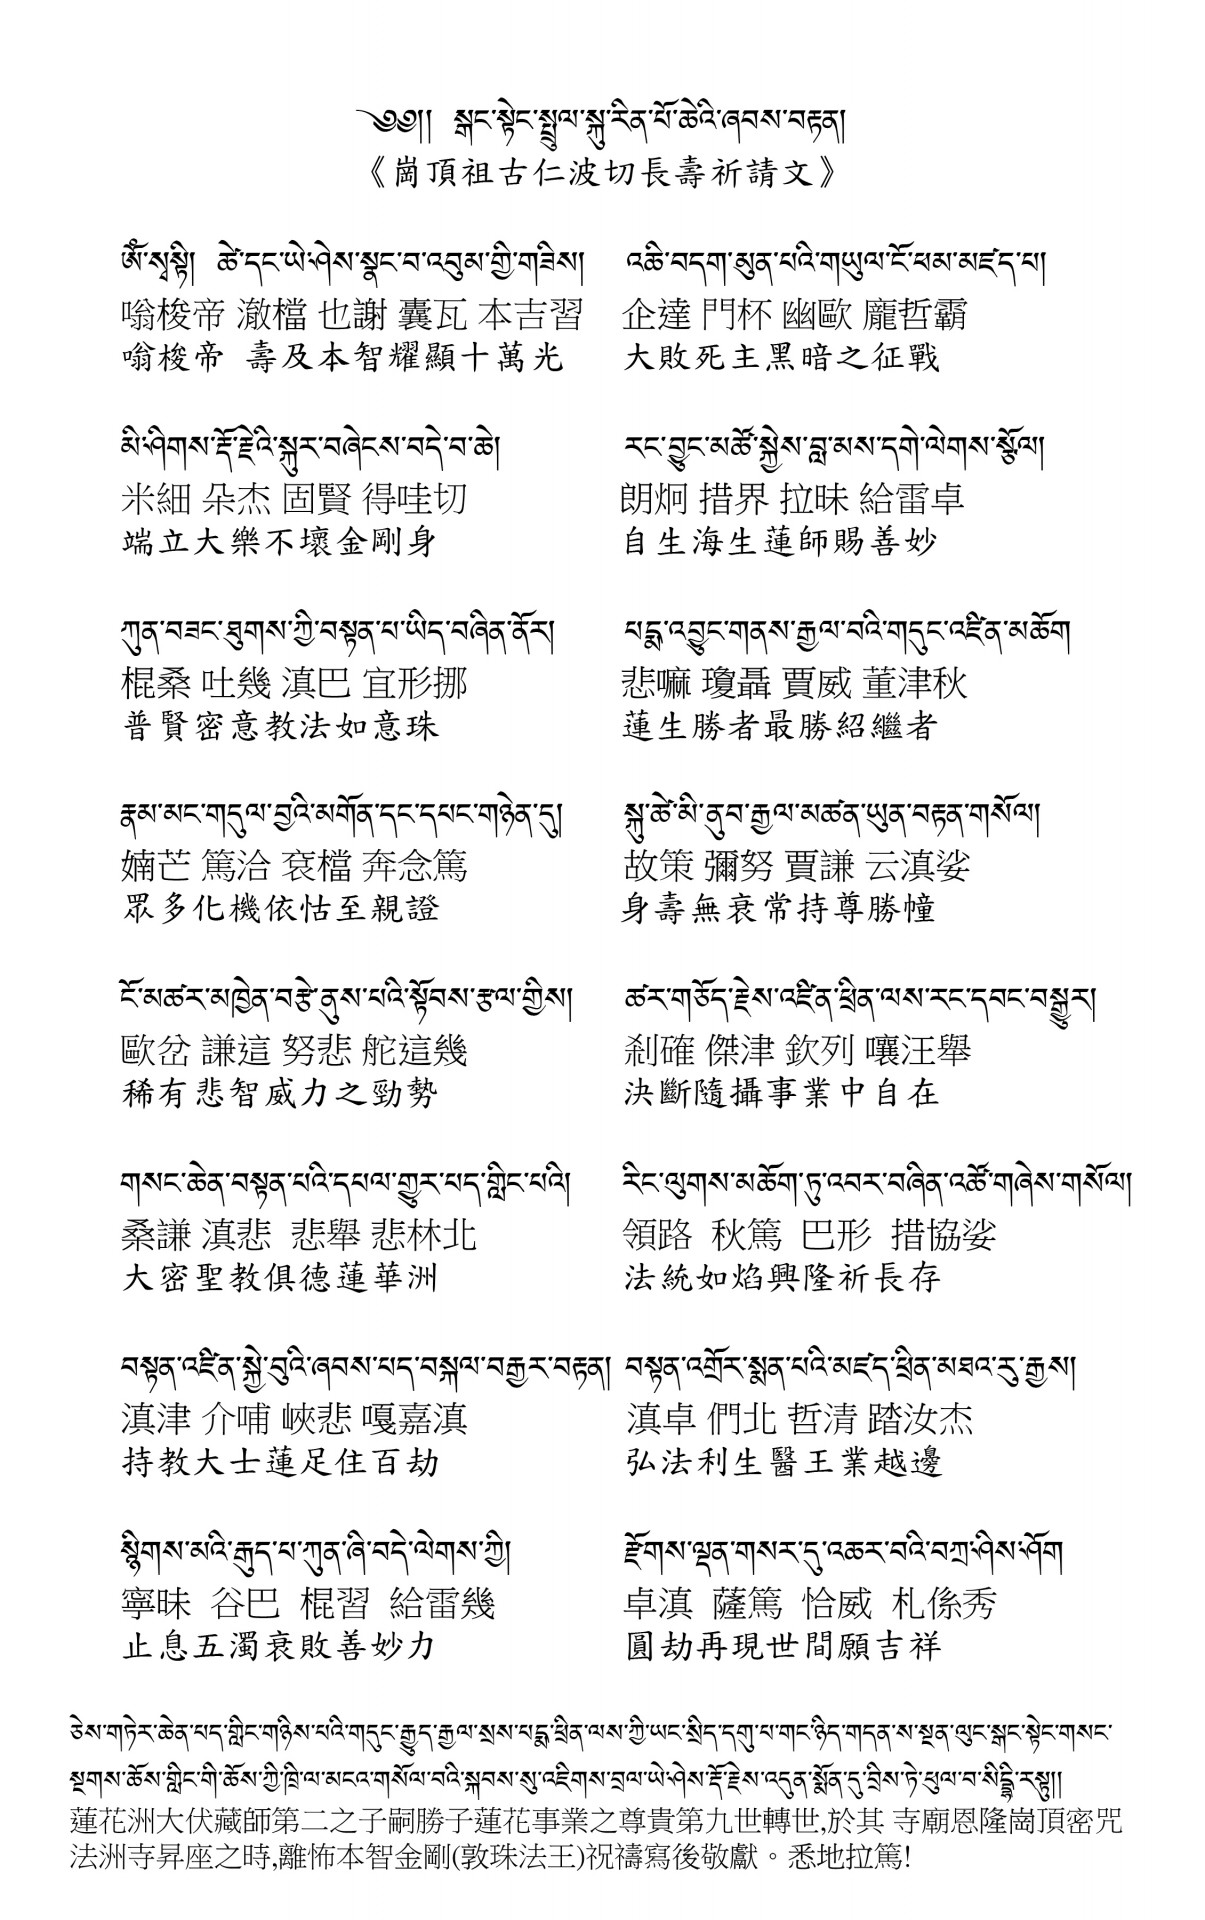 ༄༅།། སྒང་སྟེང་སྤྲུལ་སྐུ་རིན་པོ་ཆེའི་ཞབས་བརྟན།
《崗頂祖古仁波切長壽祈請文》
ཨོཾ་སྭསྟི། ཚེ་དང་ཡེ་ཤེས་སྣང་བ་འབུམ་གྱི་གཟིས། འཆི་བདག་མུན་པའི་གཡུལ་ངོ་ཕམ་མཛད་པ།
嗡梭帝 澈檔 也謝 囊瓦 本吉習 企達 門杯 幽歐 龐哲霸
嗡梭帝 壽及本智耀顯十萬光 大敗死主黑暗之征戰
མི་ཤིགས་རྡོ་རྗེའི་སྐུར་བཞེངས་བདེ་བ་ཆེ། རང་བྱུང་མཚོ་སྐྱེས་བླ་མས་དགེ་ལེགས་སྩོལ།
米細 朵杰 固賢 得哇切 朗炯 措界 拉昧 給雷卓
端立大樂不壞金剛身 自生海生蓮師賜善妙
ཀུན་བཟང་ཐུགས་ཀྱི་བསྟན་པ་ཡིད་བཞིན་ནོར། པདྨ་འབྱུང་གནས་རྒྱལ་བའི་གདུང་འཛིན་མཆོག
棍桑 吐幾 滇巴 宜形挪 悲嘛 瓊聶 賈威 董津秋
普賢密意教法如意珠 蓮生勝者最勝紹繼者
རྣམ་མང་གདུལ་བྱའི་མགོན་དང་དཔང་གཉེན་དུ། སྐུ་ཚེ་མི་ནུབ་རྒྱལ་མཚན་ཡུན་བརྟན་གསོལ།
婻芒 篤洽 袞檔 奔念篤 故策 彌努 賈謙 云滇娑
眾多化機依怙至親證 身壽無衰常持尊勝幢
ངོ་མཚར་མཁྱེན་བརྩེ་ནུས་པའི་སྟོབས་རྩལ་གྱིས། ཚར་གཅོད་རྗེས་འཛིན་ཕྲིན་ལས་རང་དབང་བསྒྱུར།
歐岔 謙這 努悲 舵這幾 剎確 傑津 欽列 嚷汪舉
稀有悲智威力之勁勢 決斷隨攝事業中自在
གསང་ཆེན་བསྟན་པའི་དཔལ་གྱུར་པད་གླིང་པའི། རིང་ལུགས་མཆོག་ཏུ་འབར་བཞིན་འཚོ་གཞེས་གསོལ།།
桑謙 滇悲 悲舉 悲林北 領路 秋篤 巴形 措協娑
大密聖教俱德蓮華洲 法統如焰興隆祈長存
བསྟན་འཛིན་སྐྱེ་བུའི་ཞབས་པད་བསྐལ་བརྒྱར་བརྟན། བསྟན་འགྲོར་སྨན་པའི་མཛད་ཕྲིན་མཐའ་རུ་རྒྱས།
滇津 介哺 峽悲 嘎嘉滇 滇卓 們北 哲清 踏汝杰
持教大士蓮足住百劫 弘法利生醫王業越邊
སྙིགས་མའི་རྒུད་པ་ཀུན་ཞི་བདེ་ལེགས་ཀྱི། རྫོགས་ལྡན་གསར་དུ་འཆར་བའི་བཀྲ་ཤིས་ཤོག
寧昧 谷巴 棍習 給雷幾 卓滇 薩篤 恰威 札係秀
止息五濁衰敗善妙力 圓劫再現世間願吉祥
ཅེས་གཏེར་ཆེན་པད་གླིང་གཉིས་པའི་གདུང་རྒྱུད་རྒྱལ་སྲས་པདྨ་ཕྲིན་ལས་ཀྱི་ཡང་སྲིད་དགུ་པ་གང་ཉིད་གདན་ས་སྔན་ལུང་སྒང་སྟེང་གསང་
སྔགས་ཆོས་གླིང་གི་ཆོས་ཀྱི་ཁྲི་ལ་མངའ་གསོལ་བའི་སྐབས་སུ་འཇིགས་བྲལ་ཡེ་ཤེས་རྡོ་རྗེས་འདུན་སྨོན་དུ་བྲིས་ཏེ་ཕུལ་བ་སིདྡྷི་རསྟུ།།
蓮花洲大伏藏師第二之子嗣勝子蓮花事業之尊貴第九世轉世,於其 寺廟恩隆崗頂密咒
法洲寺昇座之時,離怖本智金剛(敦珠法王)祝禱寫後敬獻。悉地拉篤!